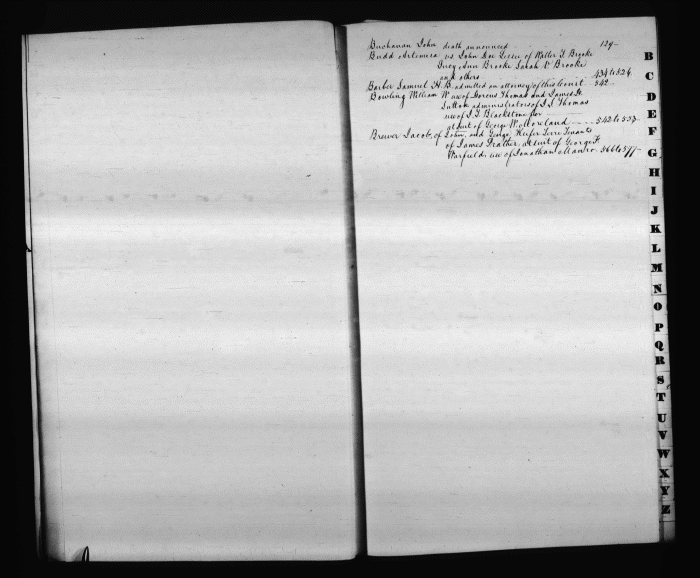 Buchanan John, death announced 129-
Budd Artemina vs John Doe Lessee of Walter T Brooke
Lucy Ann Brooke Sarah R Brooke
and others 434 to 524
Barber Samuel H. B. admitted an attorney of this Court 542
Bowling William W use of Thomas and James H
Sutton administrators of J J Thomas
use of J. T. Blackstone for
at suit of George W. Moreland 542 to 557
Brewer Jacob, of John, and George Keefer Terre Tenants
of James Prather, at suit of George F.
Warfield, use of Jonathan Manro 566 to 577-
B
C
D
E
F
G
H
I
J
K
L
M
N
O
P
Q
R
S
T
U
V
W
X
Y
Z